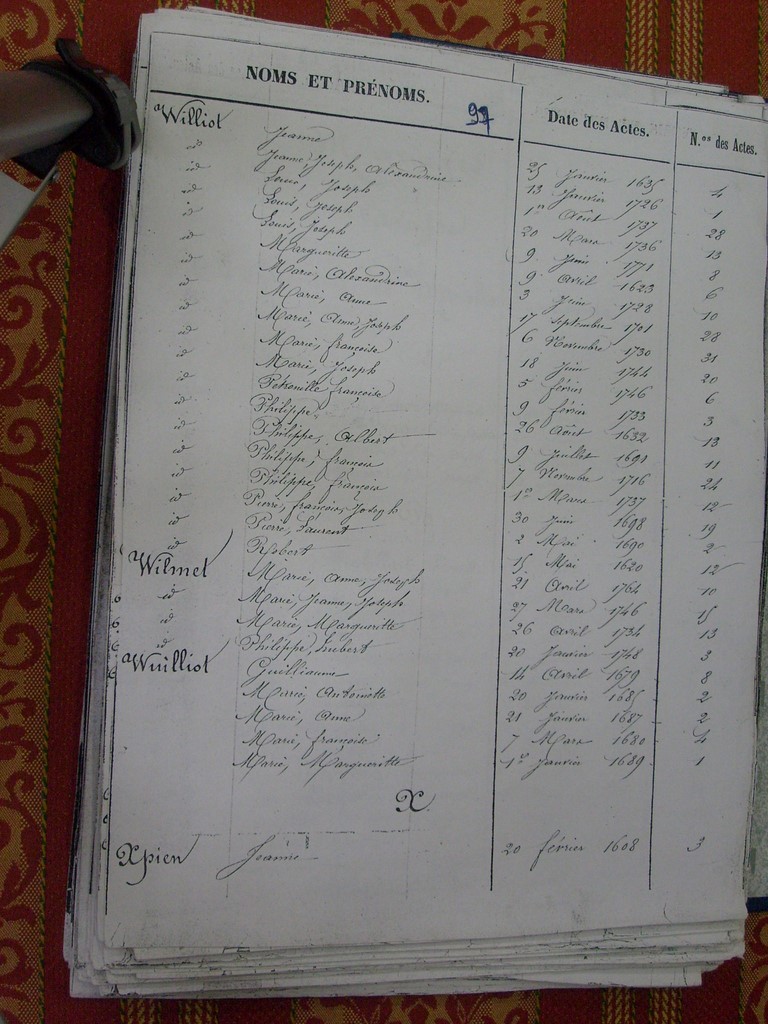 NOMS ET PRÉNOMS. 97 Date des Actes. N.os des Actes.
Williot Jeanne 25 Janvier 1635 4
id Jeanne, Joseph, Alexandrine 13 Janvier 1726 1
id Louis, Joseph 1er Août 1737 28
id Louis, Joseph 20 Mars 1736 13
id Louis, Joseph 9 Juin 1771 8
id Margueritte 9 Avril 1623 6
id Marie, Alexandrine 3 Juin 1728 10
id Marie, Anne 17 Septembre 1701 28
id Marie, Anne, Joseph 6 Novembre 1730 31
id Marie, françoise 18 Juin 1744 20
id Marie, Joseph 5 février 1746 6
id Petronille françoise 9 février 1733 3
id Philippe 26 Août 1632 13
id Philippe, Albert 9 Juillet 1691 11
id Philippe, françois 7 Novembre 1716 24
id Philippe, françois 1er Mars 1737 12
id Pierre, françois, Joseph 30 Juin 1698 19
id Pierre, Laurent 2 Mai 1690 2
id Robert 15 Mai 1620 12
Wilmet Marie, Anne, Joseph 21 Avril 1764 10
id Marie, Jeanne, Joseph 27 Mars 1746 15
id Marie, Margueritte 26 Avril 1734 13
id Philippe, hubert 20 Janvier 1748 3
Wuilliot Guilliaume 14 Avril 1679 8
Marie, Antoinette 20 Janvier 1685 2
Marie, Anne 21 Janvier 1687 2
Marie, françoise 7 Mars 1680 4
Marie, Margueritte 1er Janvier 1689 1
X.
Xpien Jeanne 20 février 1608 3